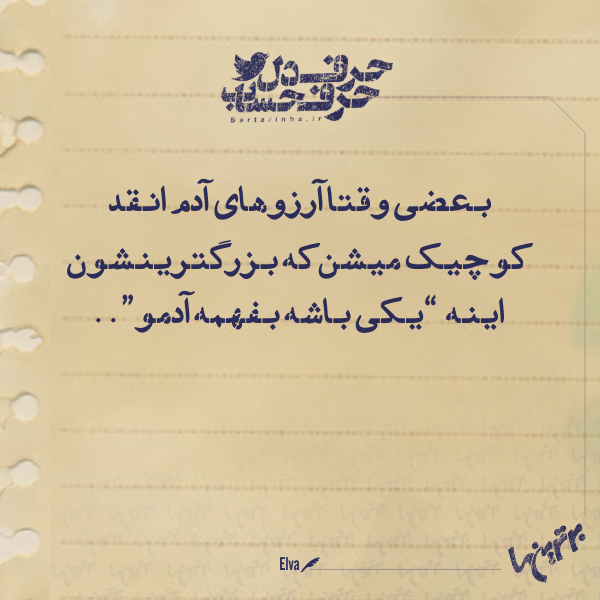 حرف دل
حرف حساب
Bartarinha.ir
بعضی وقتا آرزوهای آدم انقد
کوچیک میشن که بزرگترینشون
اینه “یکی باشه بفهمه آدمو”..
Elva
برترین ها